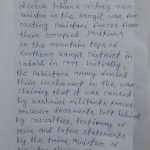 observe Indian's victory over
exploits in the Kargil war for
ousting Pakistani forces from
their occupied positions
on the mountain tops of
Northern Kargil District in
Ladakh in 1999. Initially,
the Pakistani army denied
their involvement in the war,
claiming that it was caused
by Kashmiri militants forces.
However documents left behind
by casualties, testimony of
POWs and later statements
by the Prime Minister of